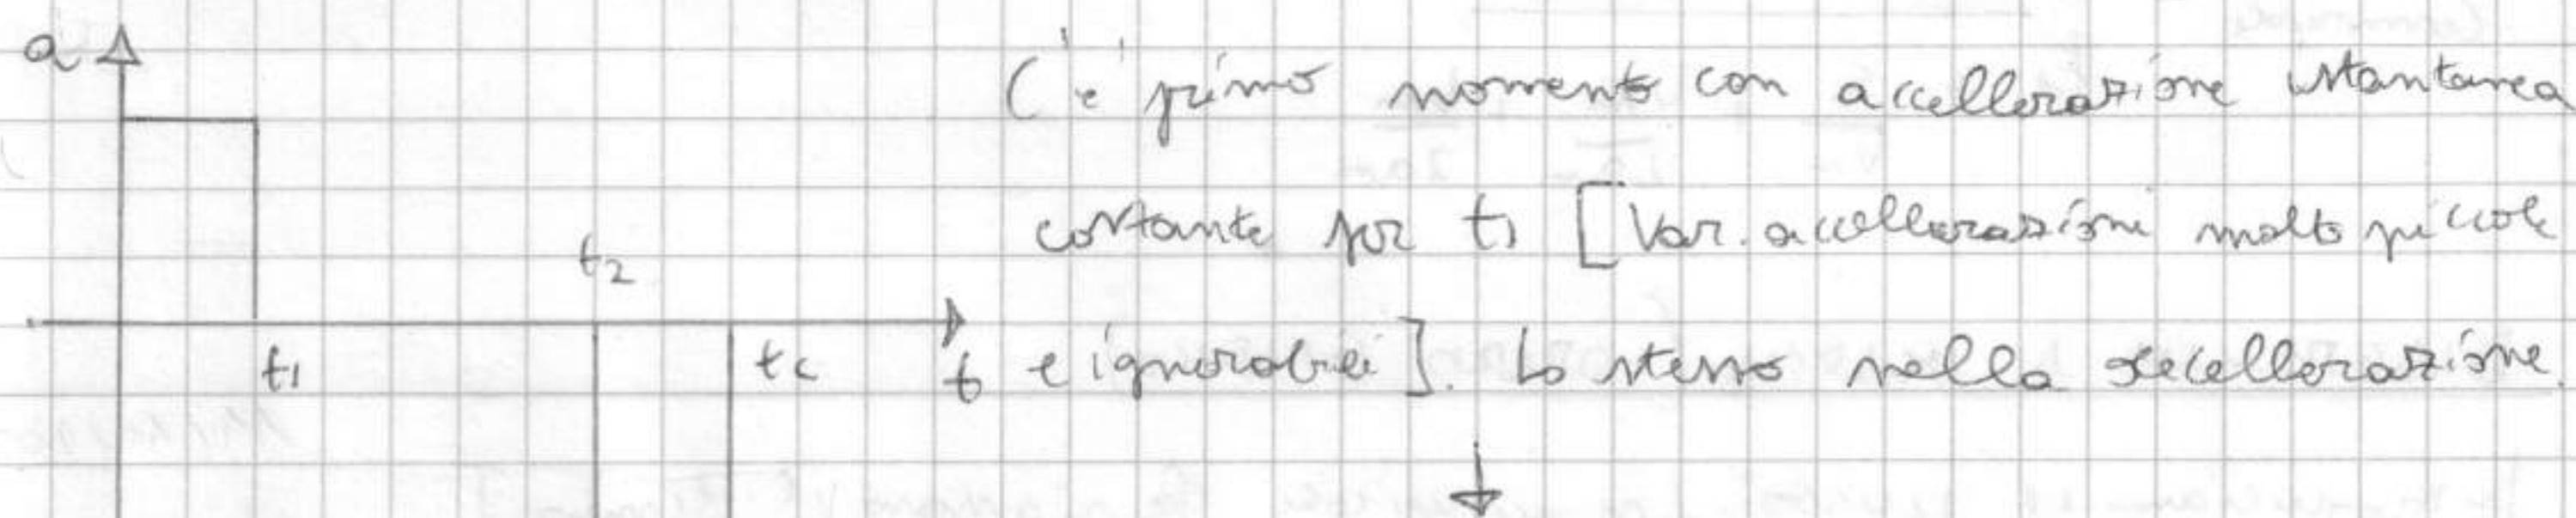 a
C'è primo momento con accellerazione istantanea
costante per t1 [Var. accellerazioni molto piccole
t2
e ignorabili]. Lo stesso nella decellerazione.
t1
tc
t